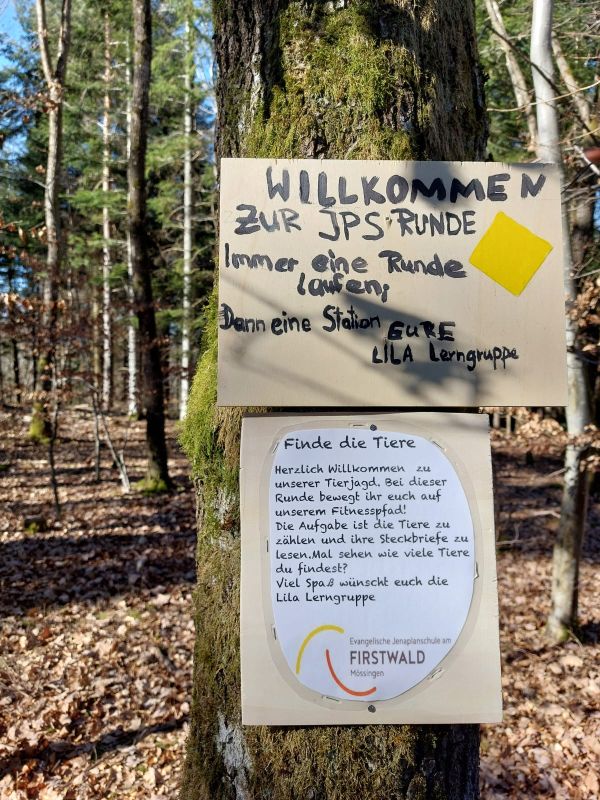 WILLKOMMEN
ZUR JPS RUNDE
Immer eine Runde
laufen,
Dann eine Station EURE
LILA Lerngruppe
Finde die Tiere
Herzlich Willkommen zu
unserer Tierjagd. Bei dieser
Runde bewegt ihr euch auf
unserem Fitnesspfad!
Die Aufgabe ist die Tiere zu
zählen und ihre Steckbriefe zu
lesen.Mal sehen wie viele Tiere
du findest?
Viel Spaß wünscht euch die
Lila Lerngruppe
Evangelische Jenaplanschule am
FIRSTWALD
Mössingen